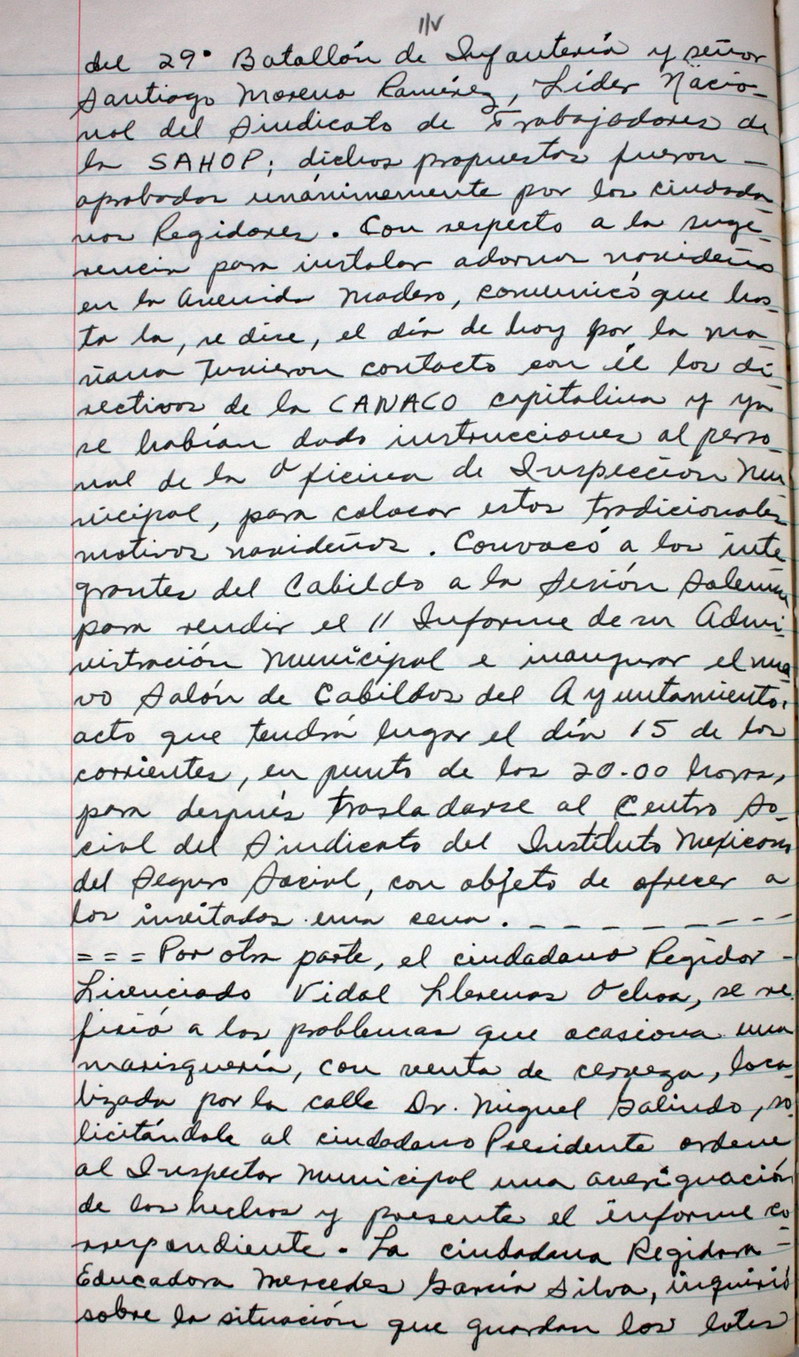 11v
del 29° Batallón de Infantería y señor
Santiago Moreno Ramírez, Líder Nacio-
nal del Sindicato de Trabajadores de
la SAHOP; dichas propuestas fueron -
aprobadas unánimemente por los ciudada
nos Regidores. Con respecto a la suge-
rencia para instalar adornos navideños
en la Avenida Madero, comunicó que has-
ta la, se dice, el día de hoy por la ma-
ñana tuvieron contacto con él los di-
rectivos de la CANACO capitalina y ya
se habían dado instrucciones al perso-
nal de la Oficina de Inspección Mu-
nicipal, para colocar estos tradicionales
motivos navideños. Convocó a los inte
grantes del Cabildo a la Sesión Solemne
para rendir el II Informe de su Admi-
nistración Municipal e inaugurar el nue
vo Salón de Cabildos del Ayuntamiento,
acto que tendrá lugar el día 15 de los
corrientes, en punto de las 20.00 horas,
para después trasladarse al Centro So-
cial del Sindicato del Instituto Mexicano
del Seguro Social, con objeto de ofrecer a
los invitados una cena. - - - - - - - - -
= = = Por otra parte, el ciudadano Regidor -
Licenciado Vidal Llerenas Ochoa, se re
firió a los problemas que ocasiona una
marisquería, con venta de cerveza, loca-
lizada por la calle Dr. Miguel Galindo, so
licitándole al ciudadano Presidente ordene
al Inspector Municipal una averiguación
de los hechos y presente el informe co
rrespondiente. La ciudadana Regidora -
Educadora Mercedes García Silva, inquirió
sobre la situación que guardan los lotes